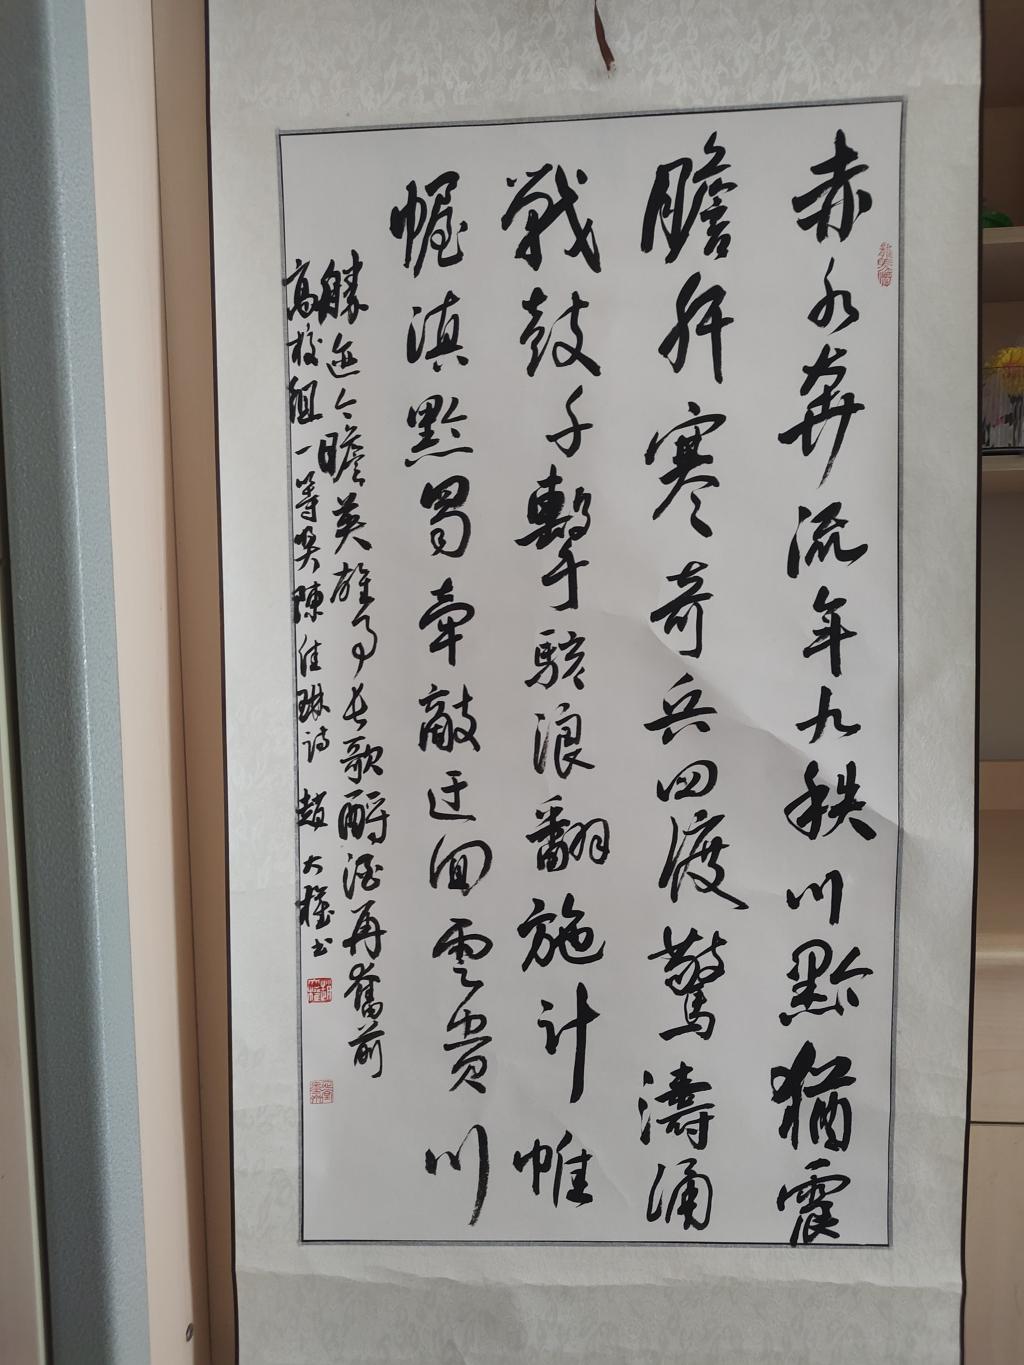 赤水奔流年九秩川黔猶震
膽肝寒奇兵四渡驚濤涌
戰鼓千擊駭浪翻施計帷
幄滇黔蜀牽敵迂回雲貴川
勝迹今瞻英雄事長歌酹酒再奮前
高校組一等奖陳佳琳诗 趙大 书